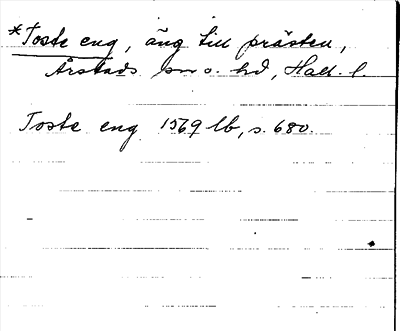 *Toste eng, äng till prästen,
Årstads sn o. hd, Hall. l.
Toste eng 1569 lb, s. 680.